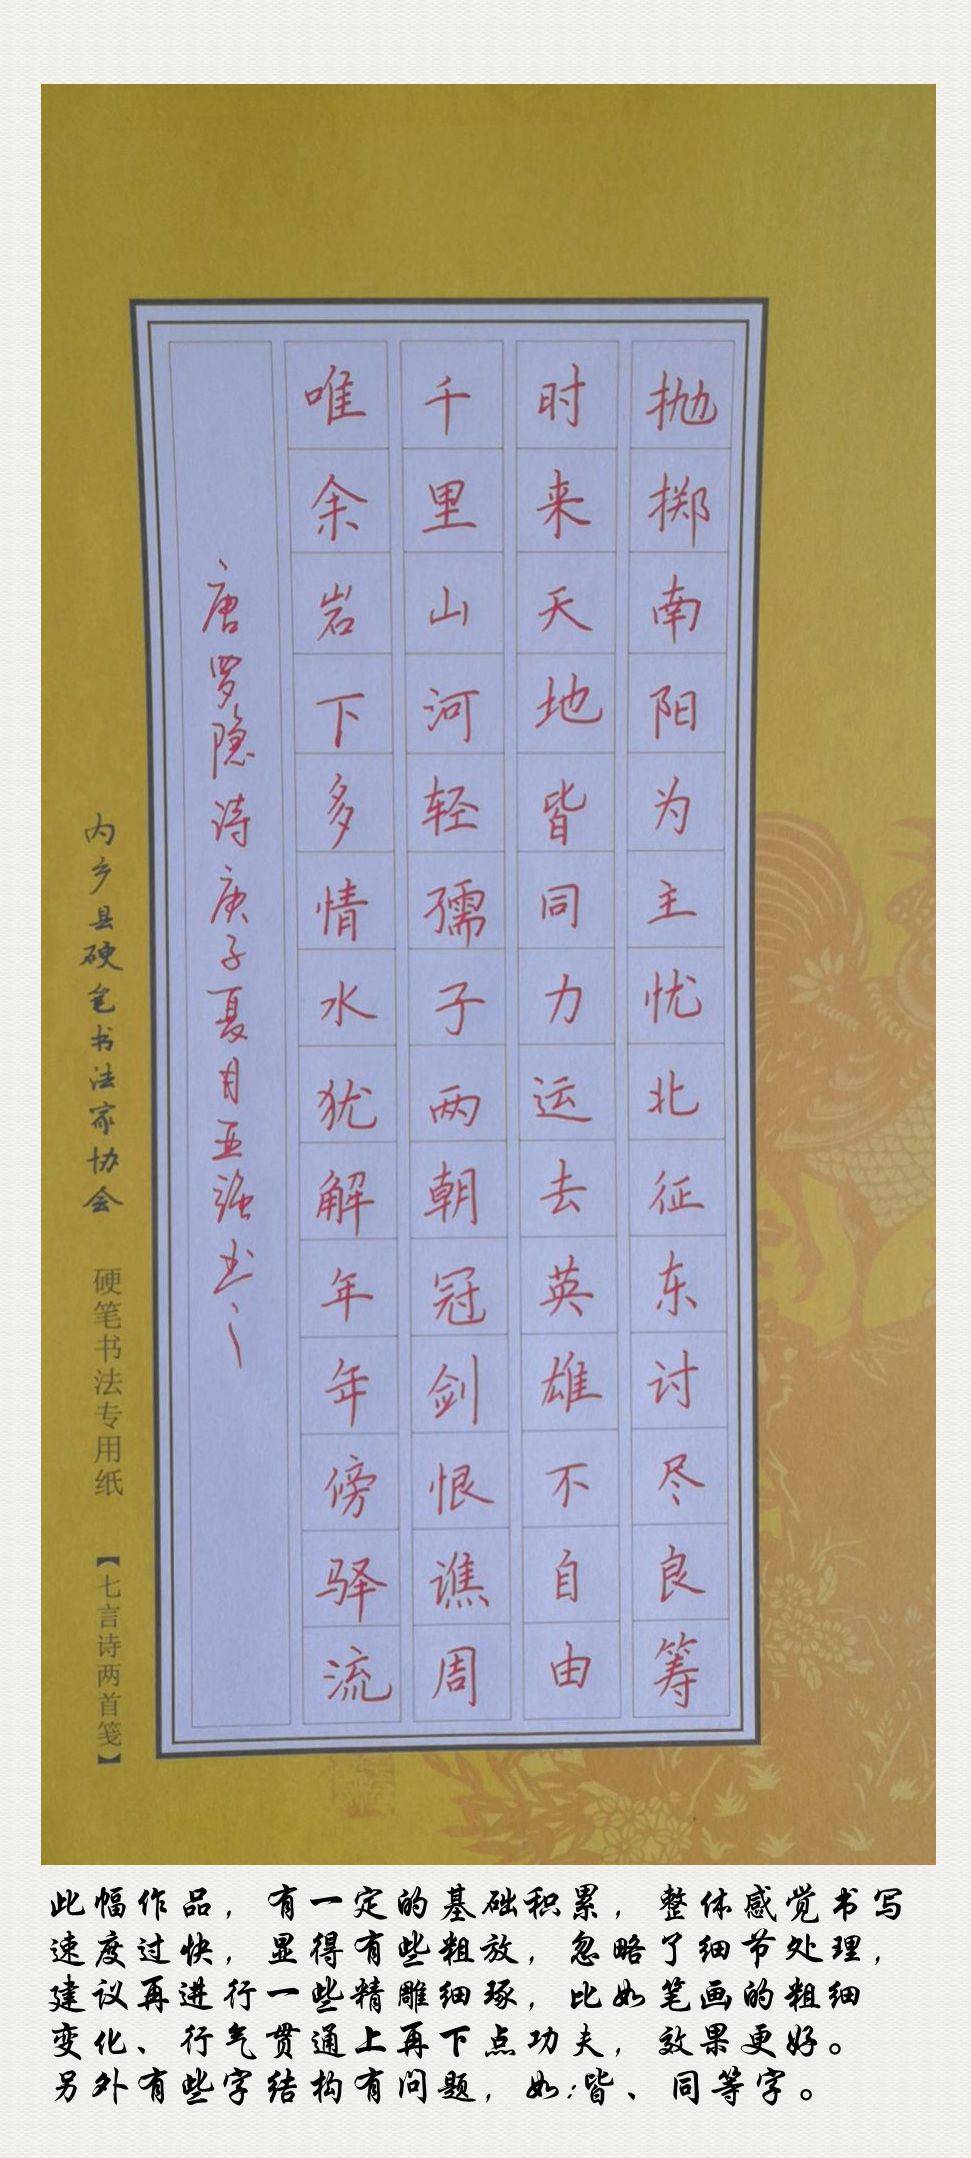 抛掷南阳为主忧北征东讨尽良筹
时来天地皆同力运去英雄不自由
千里山河轻孺子两朝冠剑恨谯周
唯余岩下多情水犹解年年傍驿流
唐罗隐诗庚子夏月亚强书
内乡县硬笔书法家协会 硬笔书法专用纸 【七言诗两首笺】
此幅作品，有一定的基础积累，整体感觉书写
速度过快，显得有些粗放，忽略了细节处理，
建议再进行一些精雕细琢，比如笔画的粗细
变化、行气贯通上再下点功夫，效果更好。
另外有些字结构有问题，如:皆、同等字。